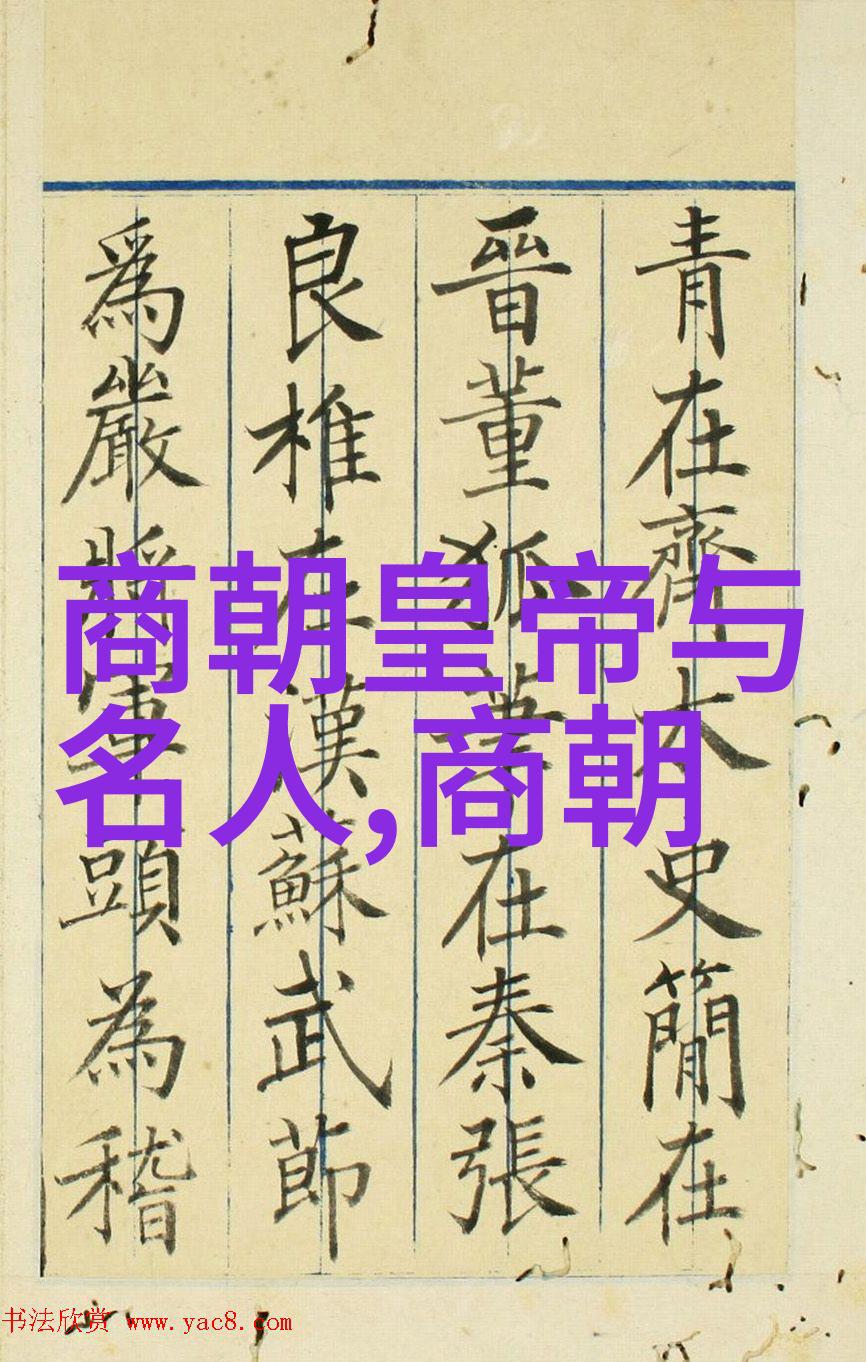 青在齊太史簡在
晉董狐筆在秦張
良椎在漢蘇武節
爲嚴將軍頭為稽
商朝皇帝与
名人,商朝
书法欣赏 www.yac8.com